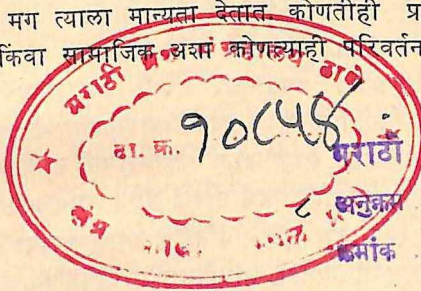 मग त्याला मान्यता देतात. कोणतीही प्र
किंवा सामाजिक अशा कोणत्याही परिवर्तन
मराठी ग्रंथ संग्रहालय ठाणे
दा. क्र. १०८५४
मराठी
अनुक्रम
क्रमांक